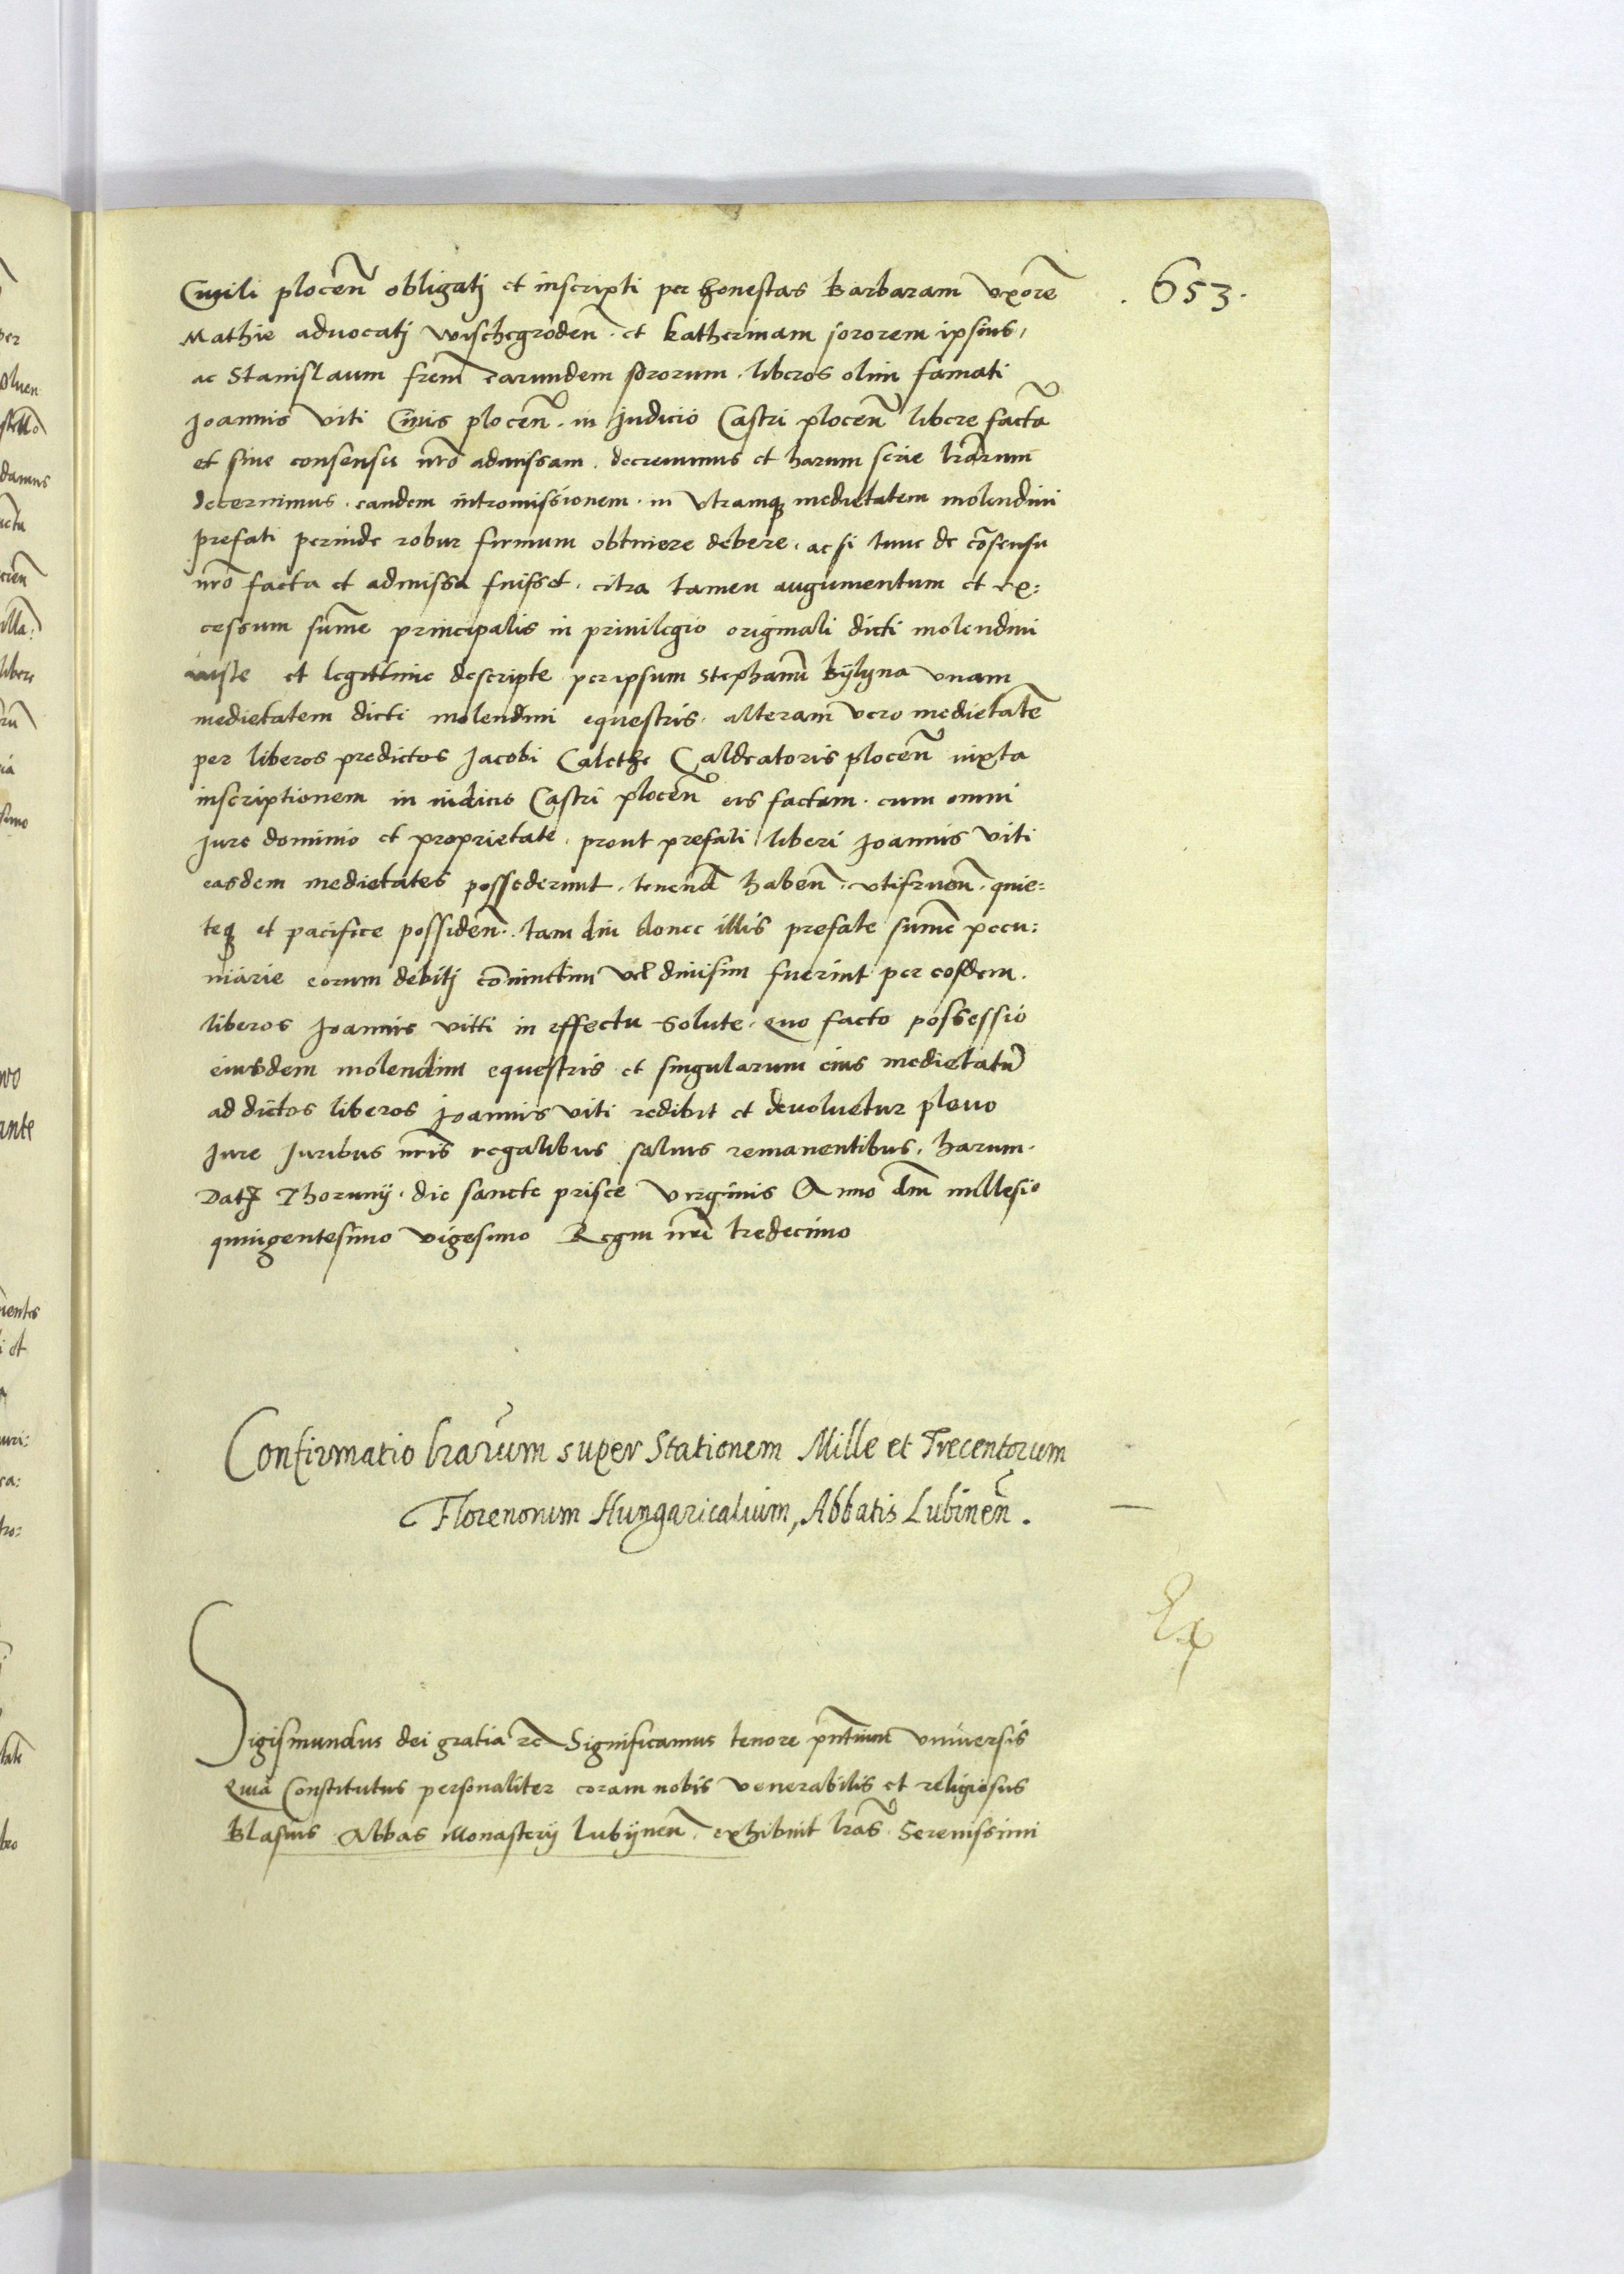 . 653 .
Civili plocen̄ obligatj et inscripti per honestas Barbaram vxorē
Mathie advocatj wischegroden̄ . et Katherinam sororem ipsius,
ac Stanislaum frēm earundem sororum . liberos olim famati
Joannis Viti Civis plocen̄ . in Judicio Castri plocen̄ libere factā
et sine consensu nrō admissam . decrevimus et harum serie lrārum
decernimus . eandem intromissionem . in vtramqꝫ medietatem molendini
prefati perinde robur firmum obtinere debere . ac si tunc de cōsensu
nrō facta et admissa fuisset . citra tamen augumentum et ex:
cessum sum̄e principalis in privilegio originali dicti molendini
iuste et legittime descripte per ipsum Stephanū Bÿlyna vnam
medietatem dicti molendini equestris . alteram vero medietatē
per liberos predictos Jacobi Calethe Caldeatoris plocen̄ iuxta
inscriptionem in iudicio Castri plocen̄ eis factam . cum omni
Jure dominio et proprietate . prout prefati liberi Joannis Viti
easdem medietates possederunt . tenend̄ haben̄ . vtifruen̄ . quie:
teqꝫ et pacifice possiden̄ . tam diu donec illis prefate sum̄e pecu:
niarie eorum debitj cōniunctim vel divisim fuerint per eosdem .
liberos Joannis vitti in effectu solute . quo facto possessio
eiusdem molendini equestris et singularum eius medietatū
ad dictos liberos Joannis viti redibit et devoluetur pleno
Jure Juribus nrīs regalibus salvis remanentibus . harum .
Datꝭ Thorunij . die sancte prisce virginis Anno dn̄i millesio
quingentesimo vigesimo Regni nrī tredecimo
Confirmatio lrārum super Stationem Mille et Trecentorum
Florenorum Hungaricalium, Abbatis Lubinen̄ .
Sigismundus dei gratia rc̄ Significamus tenore pn̄tium vniversis
Quia Constitutus personaliter coram nobis venerabilis et religiosus
Blasius Abbas Monasterij lubijnen̄ . exhibuit lrās Serenissimi